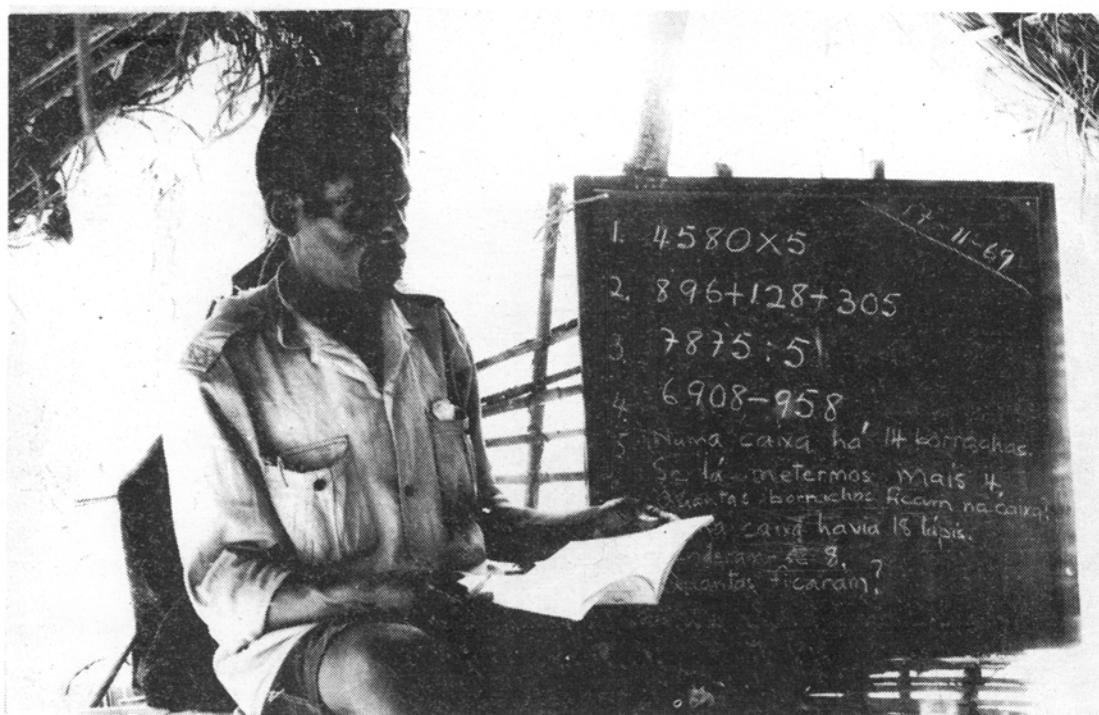 17-11-69
1. 4580×5
2. 896+128+305
3. 7875:5
4. 6908-958
5. Numa caixa há 14 borrachas.
Se lá metermos mais 4,
Quantas borrachas ficam na caixa?
caixa havia 18 lápis.
8.
Quantas ficaram?